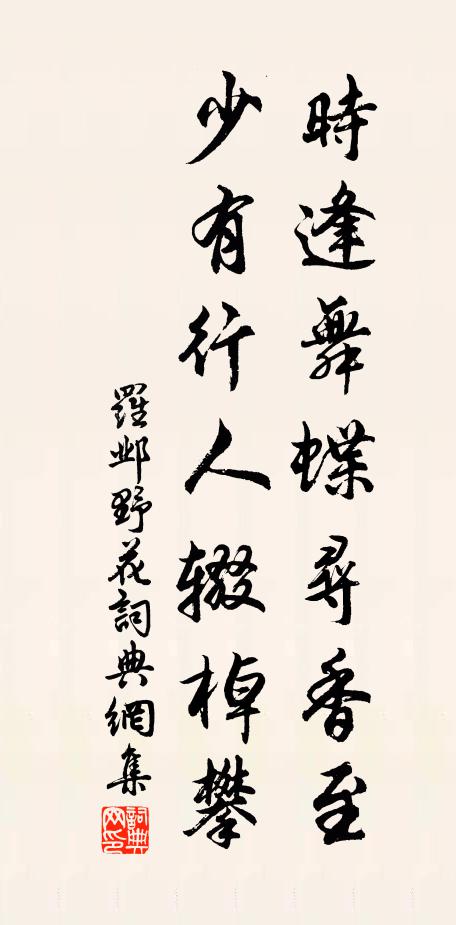 時逢舞蝶尋香至
少有行人辍棹攀
羅邺野花詞典網集
詞典网印